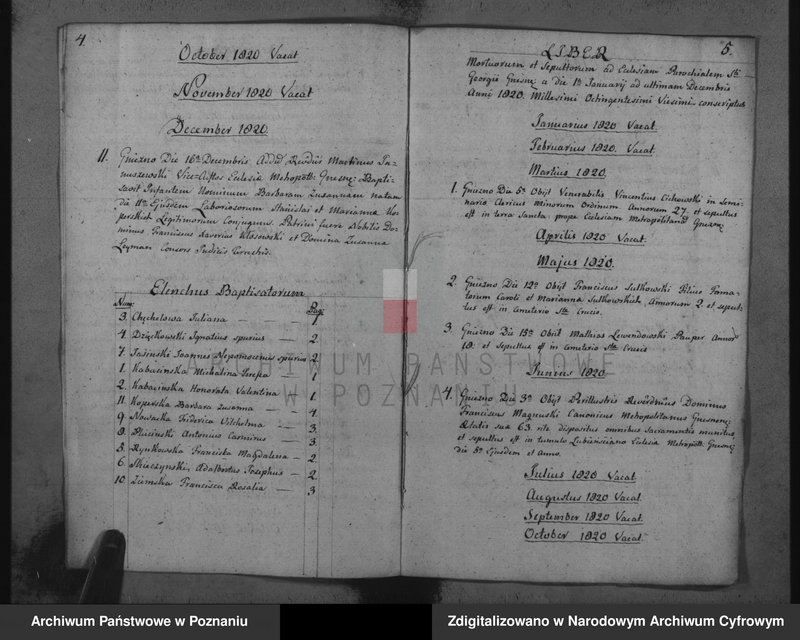 4.
October 1820 Vacat
November 1820 Vacat
December 1820.
11. Gniezno Die 16ta Decembris Martinus
Vice Eclesiæ Gnesnę: Bapti-
savit Infantem Nominum Barbaram Zusannam natam
die 11a Ejusdem Laboriosorum Stanislai et Marianna Ko-
Legitimorum Conjugum. Patrini fuere Nobilis Do-
minus Franciscus Xaverius Kłosowski et Domina Zusanna
Consors Judicis
Elenchus Baptisatorum
Num: Pag:
3. Chęchelowa Juliana — 1
4. Dzięckowski Ignatius spurius — 2
7. Jasinski Joannes Nepomocenus spurius 2
1. Kabacinska Michalina Josepha — 1
2. Kabacinska Honorata Valentina 1
11. Koperska Barbara Zusanna — 4
9. Nowacka Friderica Vilhelma — 3
8. Plucinski Antonus Carminus — 3
5. Rynkowska Francisca Magdalena — 2
6. Adalbertus Josephus — 2
10. Ziemska Francisca Rosalia — 3
5.
LIBER
Mortuorum et Sepultorum ad Eclesiam Parochialem Sti
Georgii Gnesnę a die 1a Januarij ad ultimam Decembris
Anni 1820. Millesimi Octingentesimi Viesimi conscriptus
Januarius 1820 Vacat.
Februarius 1820. Vacat.
Martius 1820.
1. Gniezno Die 5a Obijt Venerabilis Vincentius Cichowski in Semi-
nario Clericus Minorum Ordinum Annorum 27. et sepultus
est in terra Sancta prope Eclesiam Metropolitanam Gnesnę:
Aprilis 1820 Vacat.
Majus 1820.
2. Gniezno Die 12a Obijt Franciscus Sutkowski Filius Fama-
torum Caroli et Marianna Sutkowskich, Annorum 2. et sepul-
tus est in Cmeterio Sta Crucis.
3. Gniezno Die 15a Obiit Mathias Lewendowski Pauper Annor
et sepultus est in Cmeterio Sta Crucis
Junius 1820
4. Gniezno Die 3a Obijt Perillustris Reverdnius Dominus
Franciscus Canonicus Metropolitanus Gnesnenę:
Ætatis suæ 63. rite dispositus omnibus Sacramentis munitus
et sepultus est in tumulo Lubienściano Eclesia Metropolit: Gnesnę:
die 5a Ejusdem et Anno.
Julius 1820 Vacat
Augustus 1820 Vacat.
September 1820 Vacat.
October 1820 Vacat.
ARCHIWUM PAŃSTWOWE
W POZNANIU
Archiwum Państwowe w Poznaniu
Zdigitalizowano w Narodowym Archiwum Cyfrowym